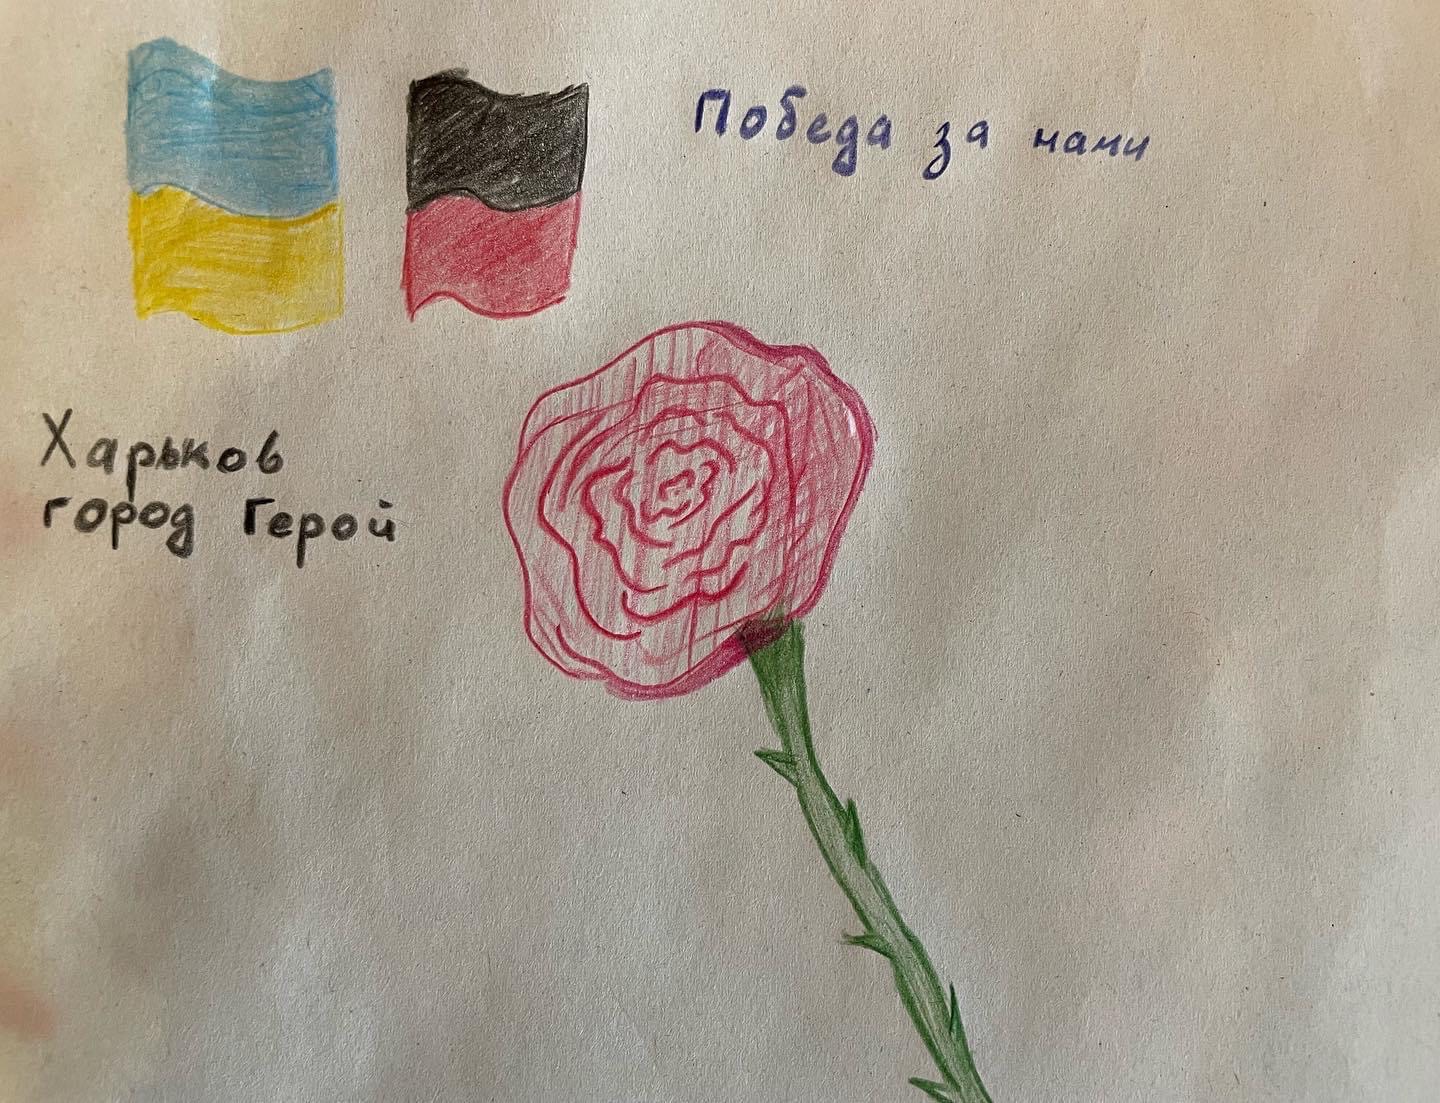 Победа за нами
Харьков
город Герой